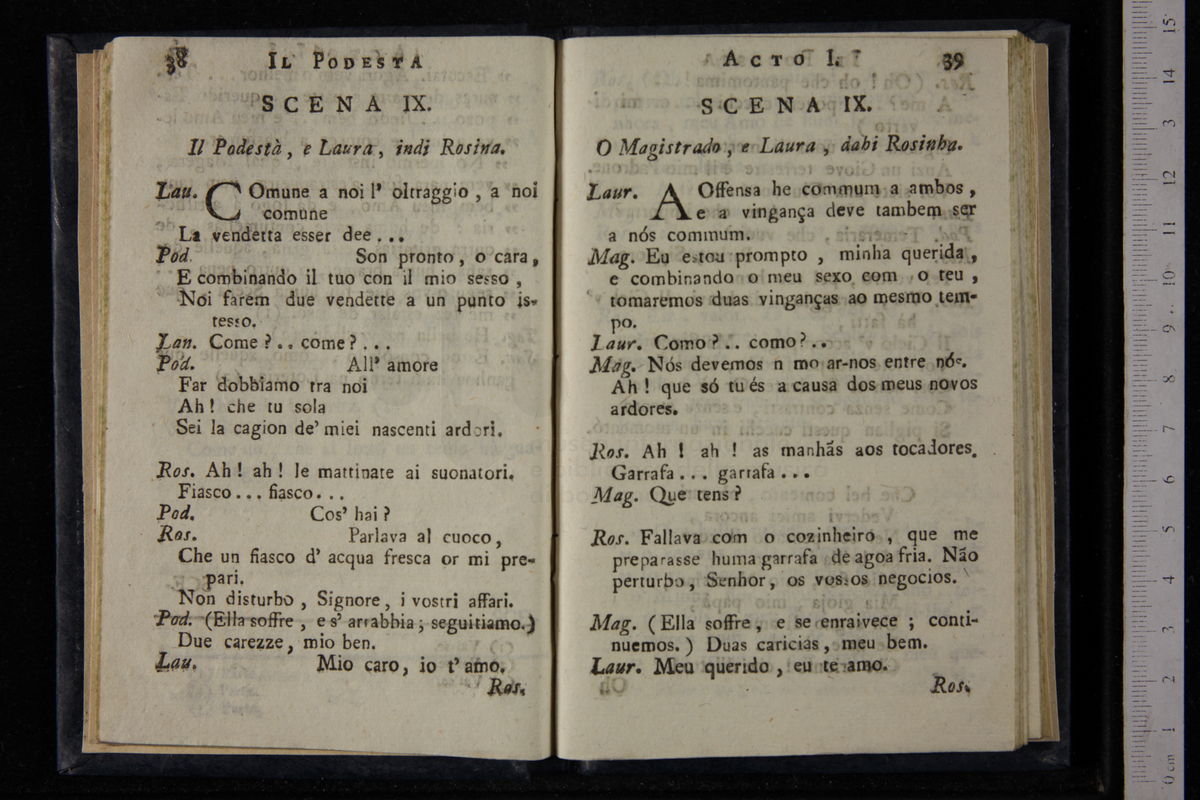 38 IL PODESTÀ
SCENA IX.
Il Podestà, e Laura, indi Rosina.
Lau. COmune a noi l' oltraggio, a noi
comune
La vendetta esser dee...
Pod. Son pronto, o cara,
E combinando il tuo con il mio sesso,
Noi farem due vendette a un punto is-
tesso.
Lan. Come?.. come?...
Pod. All' amore
Far dobbiamo tra noi
Ah! che tu sola
Sei la cagion de' miei nascenti ardori.
Ros. Ah! ah! le mattinate ai suonatori.
Fiasco... fiasco...
Pod. Cos' hai?
Ros. Parlava al cuoco,
Che un fiasco d' acqua fresca or mi pre-
pari.
Non disturbo, Signore, i vostri affari.
Pod. (Ella soffre, e s' arrabbia; seguitiamo.)
Due carezze, mio ben.
Lau. Mio caro, io t' amo.
Ros.
ACTO I. 39
SCENA IX.
O Magistrado, e Laura, dahi Rosinha.
Laur. A Offensa he commum a ambos,
e a vingança deve tambem ser
a nós commum.
Mag. Eu estou prompto, minha querida,
e combinando o meu sexo com o teu,
tomaremos duas vinganças ao mesmo tem-
po.
Laur. Como?.. como?..
Mag. Nós devemos n mo ar-nos entre nós.
Ah! que só tu és a causa dos meus novos
ardores.
Ros. Ah! ah! as manhãs aos tocadores.
Garrafa... garrafa...
Mag. Que tens?
Ros. Fallava com o cozinheiro, que me
preparasse huma garrafa de agoa fria. Não
perturbo, Senhor, os vossos negocios.
Mag. (Ella soffre, e se enraivece; conti-
nuemos.) Duas caricias, meu bem.
Laur. Meu querido, eu te amo.
Ros.
0 cm 1 2 3 4 5 6 7 8 9 10 11 12 13 14 15